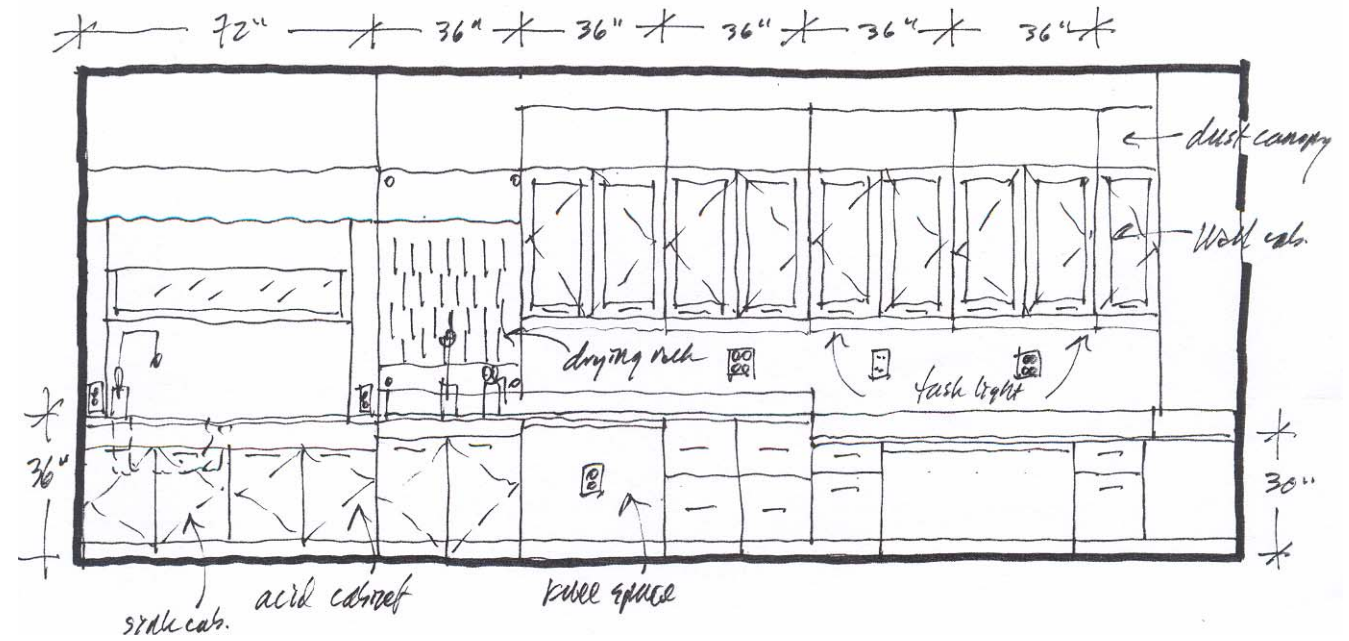 72" 36" 36" 36" 36" 36"
dust canopy
Wall cab.
drying rack
task light
36"
30"
sink cab.
acid cabinet
knee space